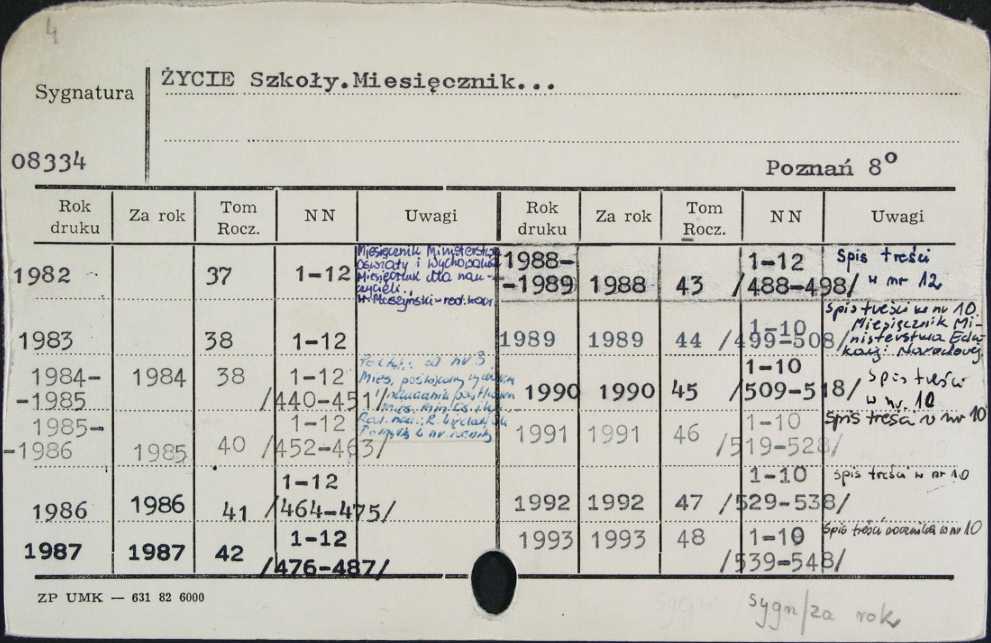 4
Sygnatura
ŻYCIE Szkoły.Miesięcznik...
08334
Poznań 8º
Rok druku Za rok Tom Rocz. NN Uwagi Rok druku Za rok Tom Rocz. NN Uwagi
1982 37 1-12 Miesięcznik Ministerstwa
Oświaty i Wychowania
Miesięcznik dla nau-
czycieli.
W. Muszyński-red.
1983 38 1-12
1984- 1984 38 1-12
-1985 /440-451/
od nr 3
Mies. poświęcony
1985- 1-12
-1986 1985 40 /452-463/
1986 1986 41 1-12
/464-475/
1987 1987 42 1-12
/476-487/
1988- 1-12 Spis treści
-1989 1988 43 /488-498/ w nr 12
1989 1989 44 1-10
/499-508/
Spis treści w nr 10.
Miesięcznik Mi-
nisterstwa Edu-
kacji Narodowej
1990 1990 45 1-10
/509-518/
Spis treści
w nr. 10
1991 1991 46 1-10
/519-528/
Spis treści w nr 10
1992 1992 47 1-10
/529-538/
spis treści w nr 10
1993 1993 48 1-10
/539-548/
Spis treści rocznika w nr 10
ZP UMK — 631 82 6000
sygn/za rok